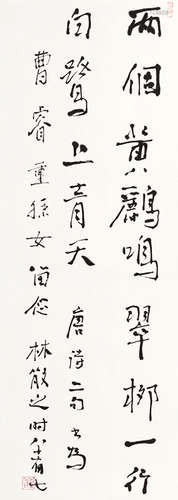 兩個黃鸝鳴翠柳一行
白鷺上青天 唐詩二句書為
曹睿重孫女留念 林散之時八十有七